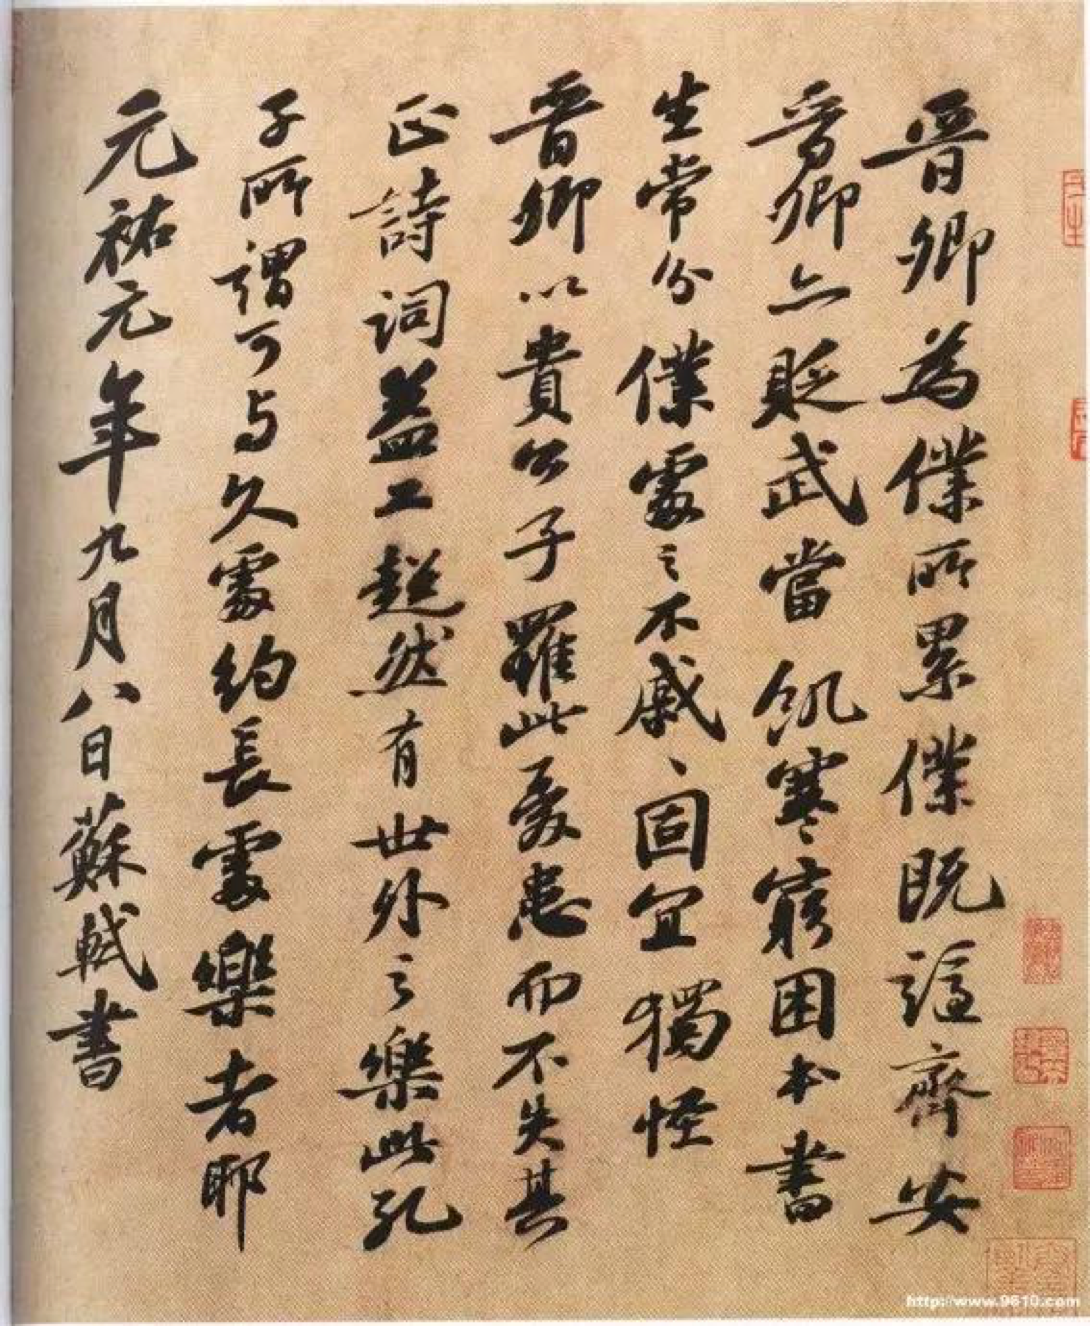 晉卿為僕所累僕既謫齊安
晉卿亦貶武當飢寒窮困本書
生常分僕處之不戚戚固宜獨怪
晉卿以貴公子罹此憂患而不失其
正詩詞益工超然有世外之樂此孔
子所謂可與久處約長處樂者耶
元祐元年九月八日蘇軾書
http://www.9610.com